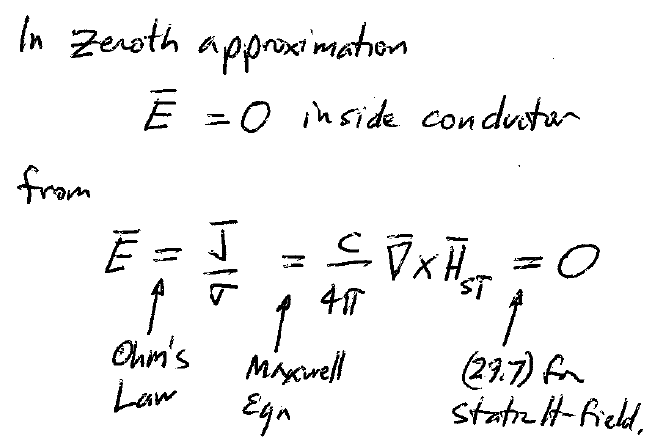 In zeroth approximation
E̅ = 0 inside conductor
from
E̅ = J̅/σ = c/4π ∇̅ × H̅_ST = 0
Ohm's Law
Maxwell Eqn
(29.7) for static H-field.